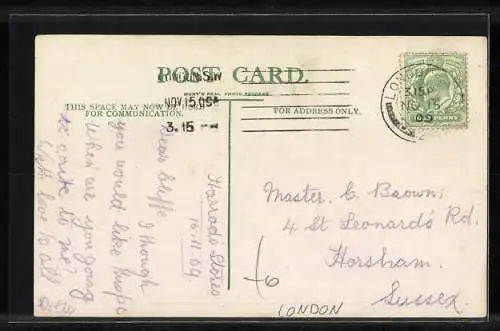 POST CARD.
LONDON. S.W
NOV 15 09
3.15
THIS SPACE MAY NOW BE USED
FOR COMMUNICATION.
FOR ADDRESS ONLY.
LONDON
3.15 P
NO 15
09
PENNY
Harrod's Stores
15.11.09
Dear Cliffe
I though
you would like this p.c
When are you going
to write to me?
With love to all
Dolly
Master. C. Brown.
4 St Leonard's Rd.
Horsham.
Sussex.
6
LONDON